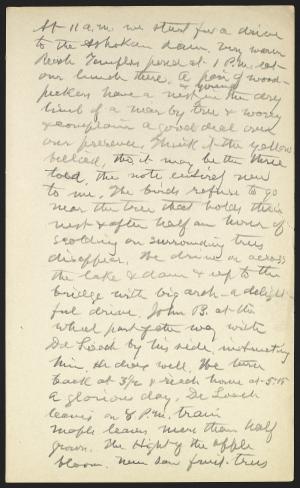 At 11 a.m. we start for a drive
to the Ashokan dam, very warm
Reach Temples pond at 1 P.M. eat
our lunch there. A pair of wood-
peckers have a nest & young in the dry
limb of a near by tree & worry
& complain a good deal over
our presence. Think it the yellow
bellied, tho it may be the three
toed, the note entirely new
to me. The birds refuse to go
near the tree that holds their
nest & after half an hour of
scolding on surrounding trees
disappear. We drive on across
the lake & dam & up to the
bridge with big arch - a delight-
ful drive. John B. at the
wheel part of the way with
De Loach by his side, instructing
him. He does well. We turn
back at 3 1/2 & reach home at 5:15
a glorious day. De Loach
leaves on 8 P.m. train
maple leaves more than half
grown. The height of the apple
bloom. never saw fruit trees